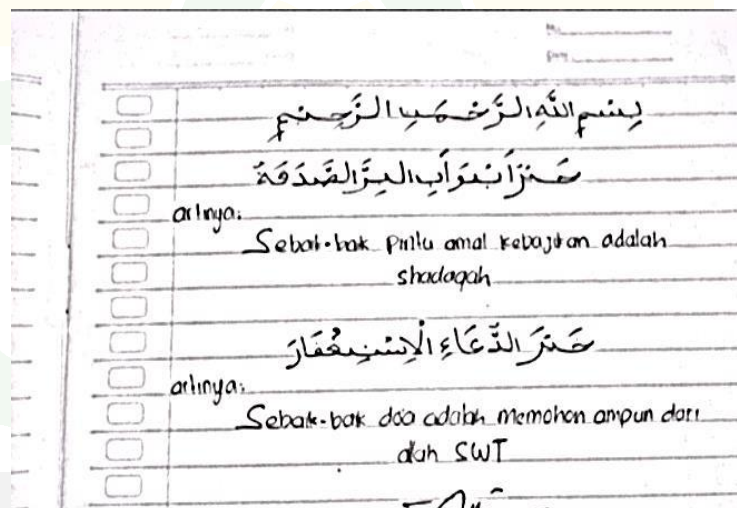 No
Day
بِسْمِ اللَّهِ الرَّحْمَنِ الرَّحِيْمِ
خَيْرُ أَبْوَابِ الْبِرِّ الصَّدَقَةُ
artinya:
Sebaik-baik pintu amal kebajikan adalah
shadaqah
خَيْرُ الدُّعَاءِ الْاِسْتِغْفَارُ
artinya:
Sebaik-baik doa adalah memohon ampun dari
allah SWT